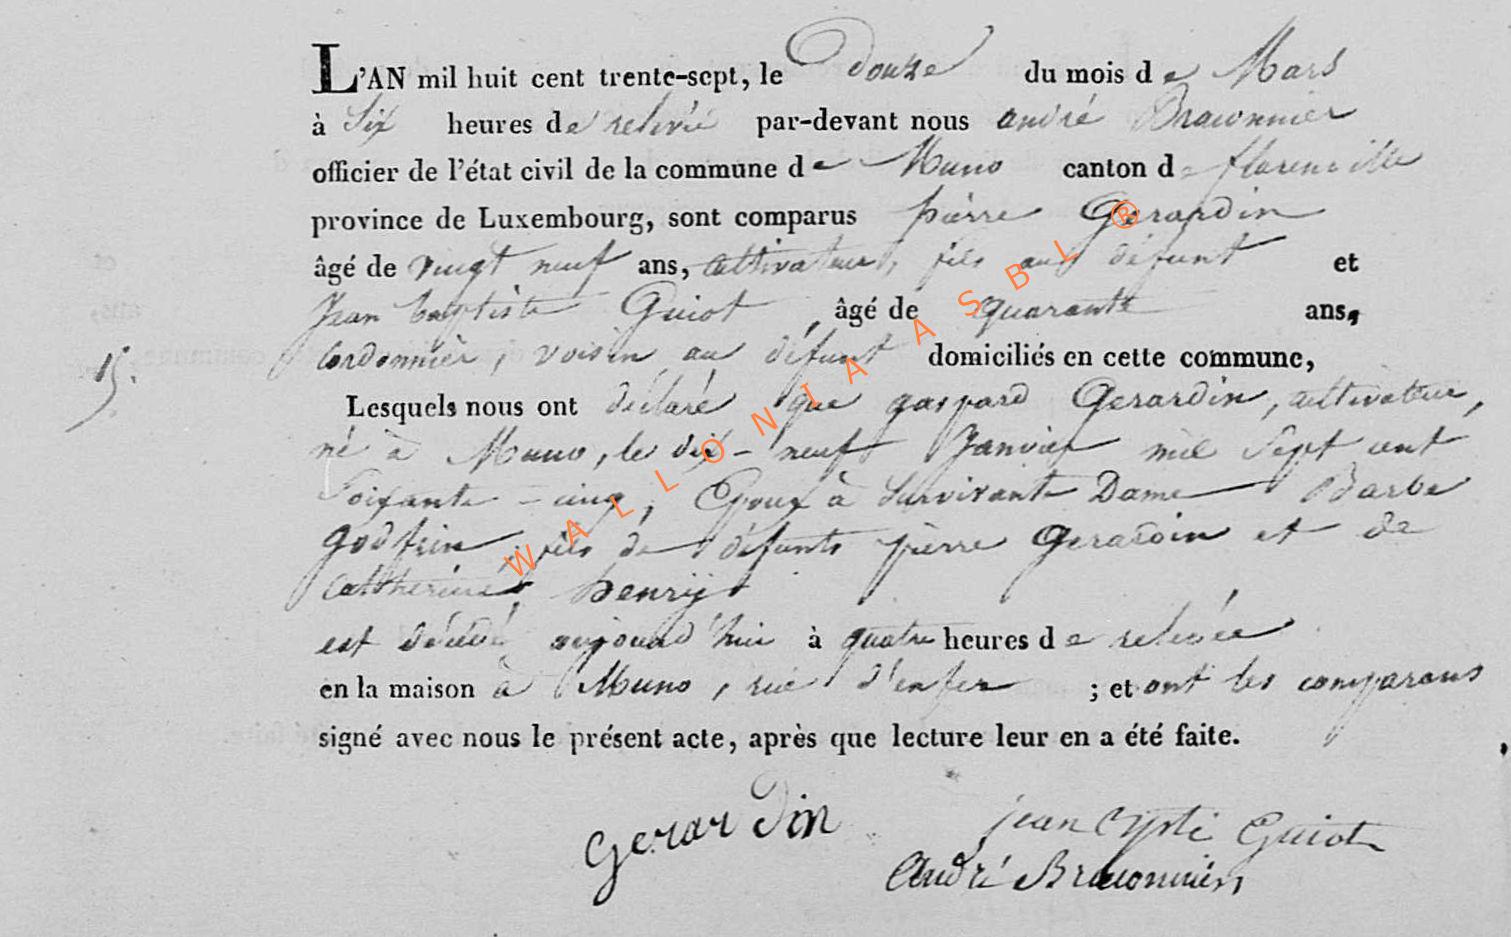 L'AN mil huit cent trente-sept, le douze du mois de Mars
à Six heures de relevée par-devant nous andré Braconnier
officier de l'état civil de la commune de Muno canton de florenville
province de Luxembourg, sont comparus pierre Gerardin
âgé de vingt neuf ans, cultivateur, fils au défunt et
Jean baptiste Guiot, âgé de quarante ans,
Cordonnier, voisin au défunt domiciliés en cette commune,
15.
Lesquels nous ont déclaré que gaspard Gerardin, cultivateur,
né à Muno, le dix-neuf Janvier mil Sept cent
Soixante-cinq, Epoux à Survivante Dame Barbe
godfrin, fils de défunts pierre Gerardin et de
Catherine henrij
est décédé aujourd'hui à quatre heures de relevée
en la maison à Muno, rue d'enfer ; et ont les comparans
signé avec nous le présent acte, après que lecture leur en a été faite.
Gerardin
jean Bpte Guiot
André Braconnier
WALLONIA ASBL ®